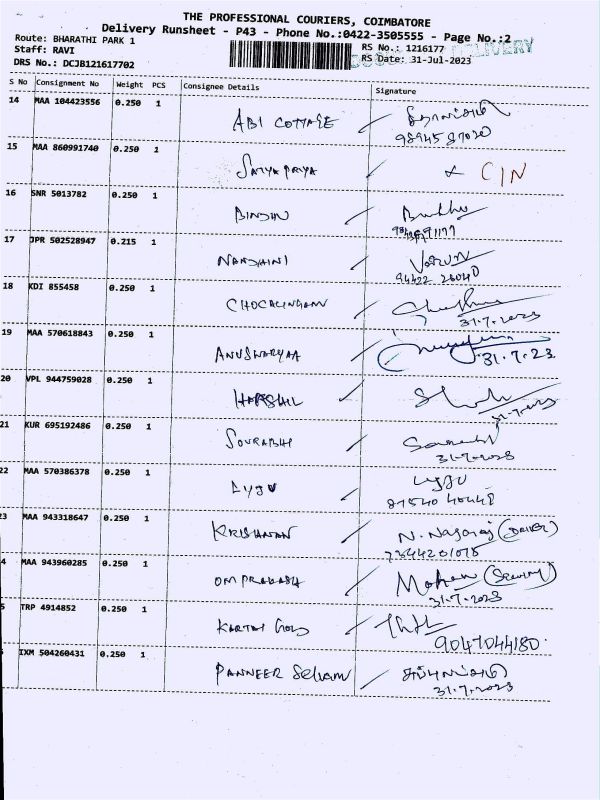 THE PROFESSIONAL COURIERS, COIMBATORE
Delivery Runsheet - P43 - Phone No.:0422-3505555 - Page No.:2
Route: BHARATHI PARK 1
RS No.: 1216177
DELIVERY
Staff: RAVI
RS Date: 31-Jul-2023
DRS No.: DCJB121617702
S No Consignment No Weight PCS Consignee Details Signature
14 MAA 104423556 0.250 1 ABI COTTAGE
15 MAA 860991740 0.250 1 SATYA PRIYA CIN
16 SNR 5013782 0.250 1
17 JPR 502528947 0.215 1 NANDHINI Varun
94422 26040
18 KDI 855458 0.250 1 CHOCALINGAM
31.7.2023
19 MAA 570618843 0.250 1
31.7.23
20 VPL 944759028 0.250 1
31.7.2023
21 KUR 695192486 0.250 1 SOURABH
31.7.2023
22 MAA 570386378 0.250 1 AYJU
81540 40448
23 MAA 943318647 0.250 1 KRISHNAN N. Nagaraj (DRIVER)
4 MAA 943960285 0.250 1 OM PRAKASH Mohan (Security)
31.7.2023
5 TRP 4914852 0.250 1
9047044180
IXM 504260431 0.250 1 PANNEER Selvam
31.7.2023